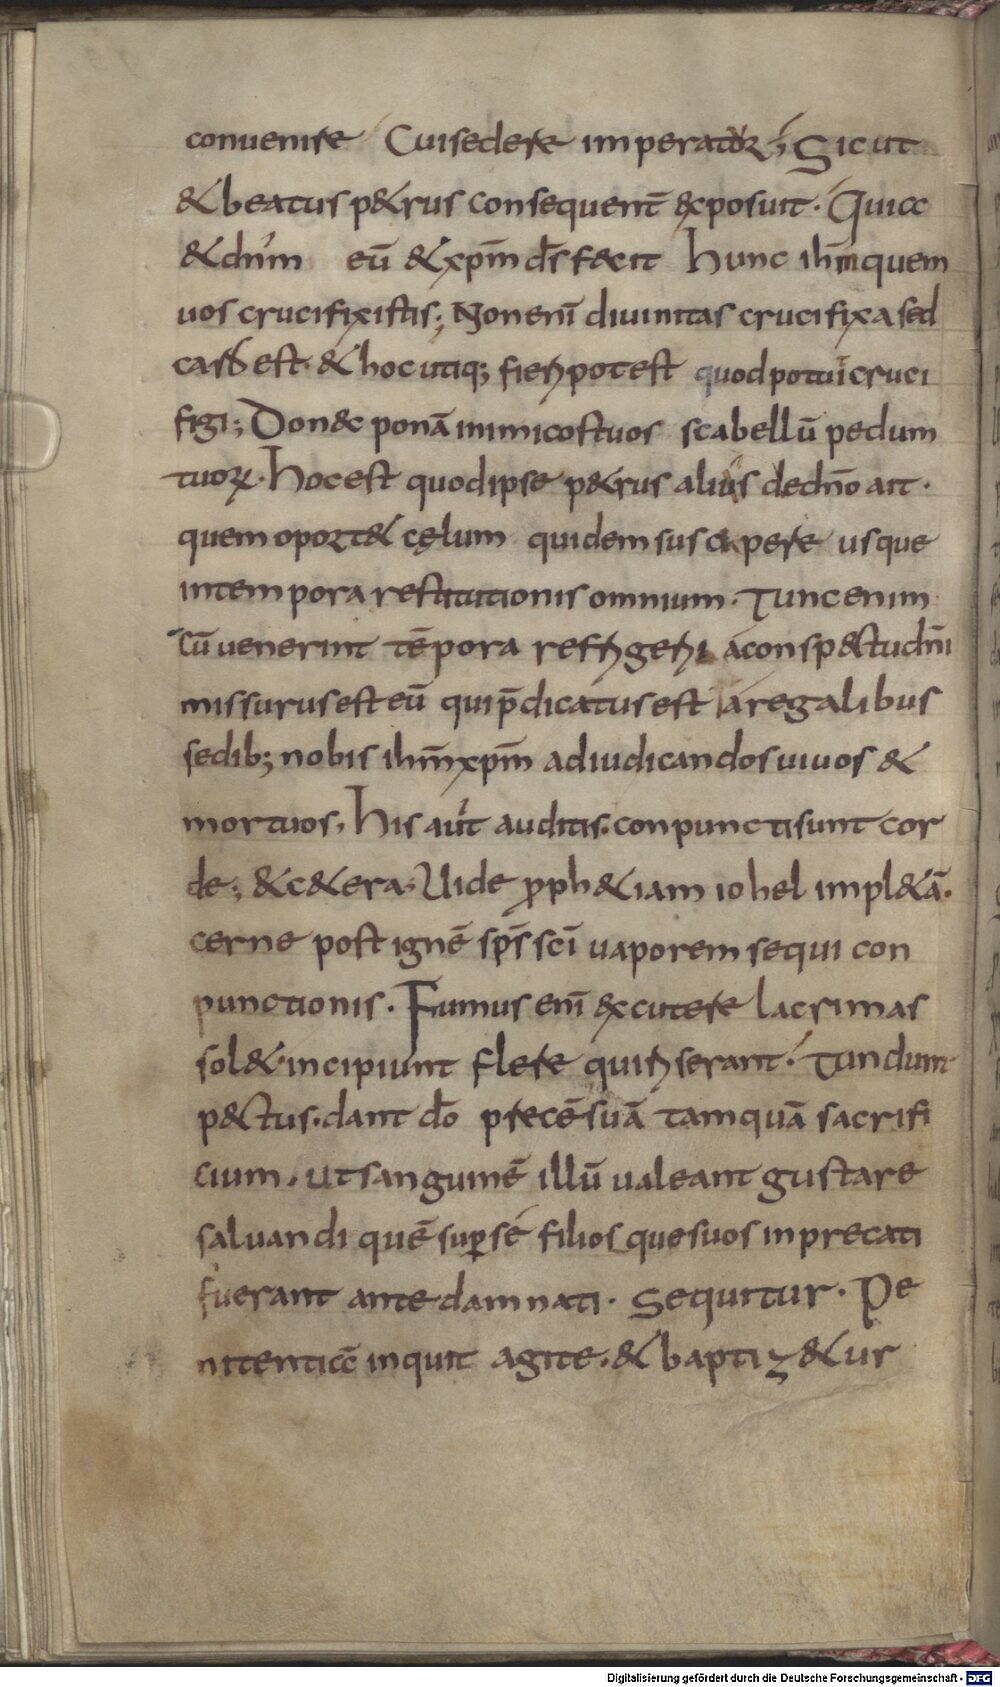 conuenire Cui sedere imperator; Sicut
& beatus p&rus consequent̄ &xposuit. Quia
& dn̄m eū & xpm̄ ds̄ fecit hunc ihm̄ quem
uos crucifixistis; Non enī diuinitas crucifixa sed
caro est. & hoc utiq; fieri potest quod potuī cruci
figi; Donec ponā inimicos tuos scabellū pedum
tuorꝝ. Hoc est quod ipse p&rus alius de dn̄o ait.
quem oport& cęlum quidem suscipere usque
in tempora restitutionis omnium. Tunc enim
cū uenerint tēpora refrigerii a conspectu dn̄i
missurus est eū qui p̄dicatus est a regalibus
sedib; nobis ihm̄ xpm̄ ad iudicandos uiuos &
mortuos. His aūt auditis. conpuncti sunt cor
de; & c&era. Uide ꝓph&iam iohel impl&ā.
cerne post ignē sps̄ scī uaporem sequi con
punctionis. Fumus enī &xcutere lacrimas
sol& incipiunt flere qui riserant. Tundunt
pectus. dant dō precē suā tamquā sacrifi
cium. ut sanguinē illū ualeant gustare
saluandi quē suꝑ sé filiosque suos inprecati
fuerant ante damnati. Sequitur. Pe
nitentiā inquit agite. & baptiz&ur
Digitalisierung gefördert durch die Deutsche Forschungsgemeinschaft - DFG